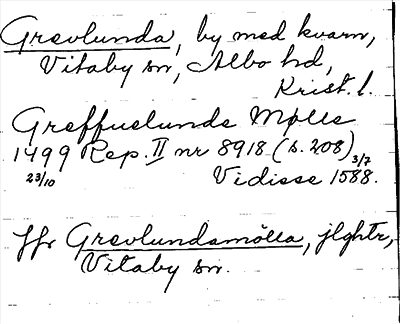 Grevlunda, by med kvarn,
Vitaby sn, Albo hd,
Krist. l.
Greffuelunde Mølle
1499 Rep. II nr 8918 (s. 208)
23/10 Vidisse 1588. 3/7
Jfr Grevlundamölla, jlghtr,
Vitaby sn.